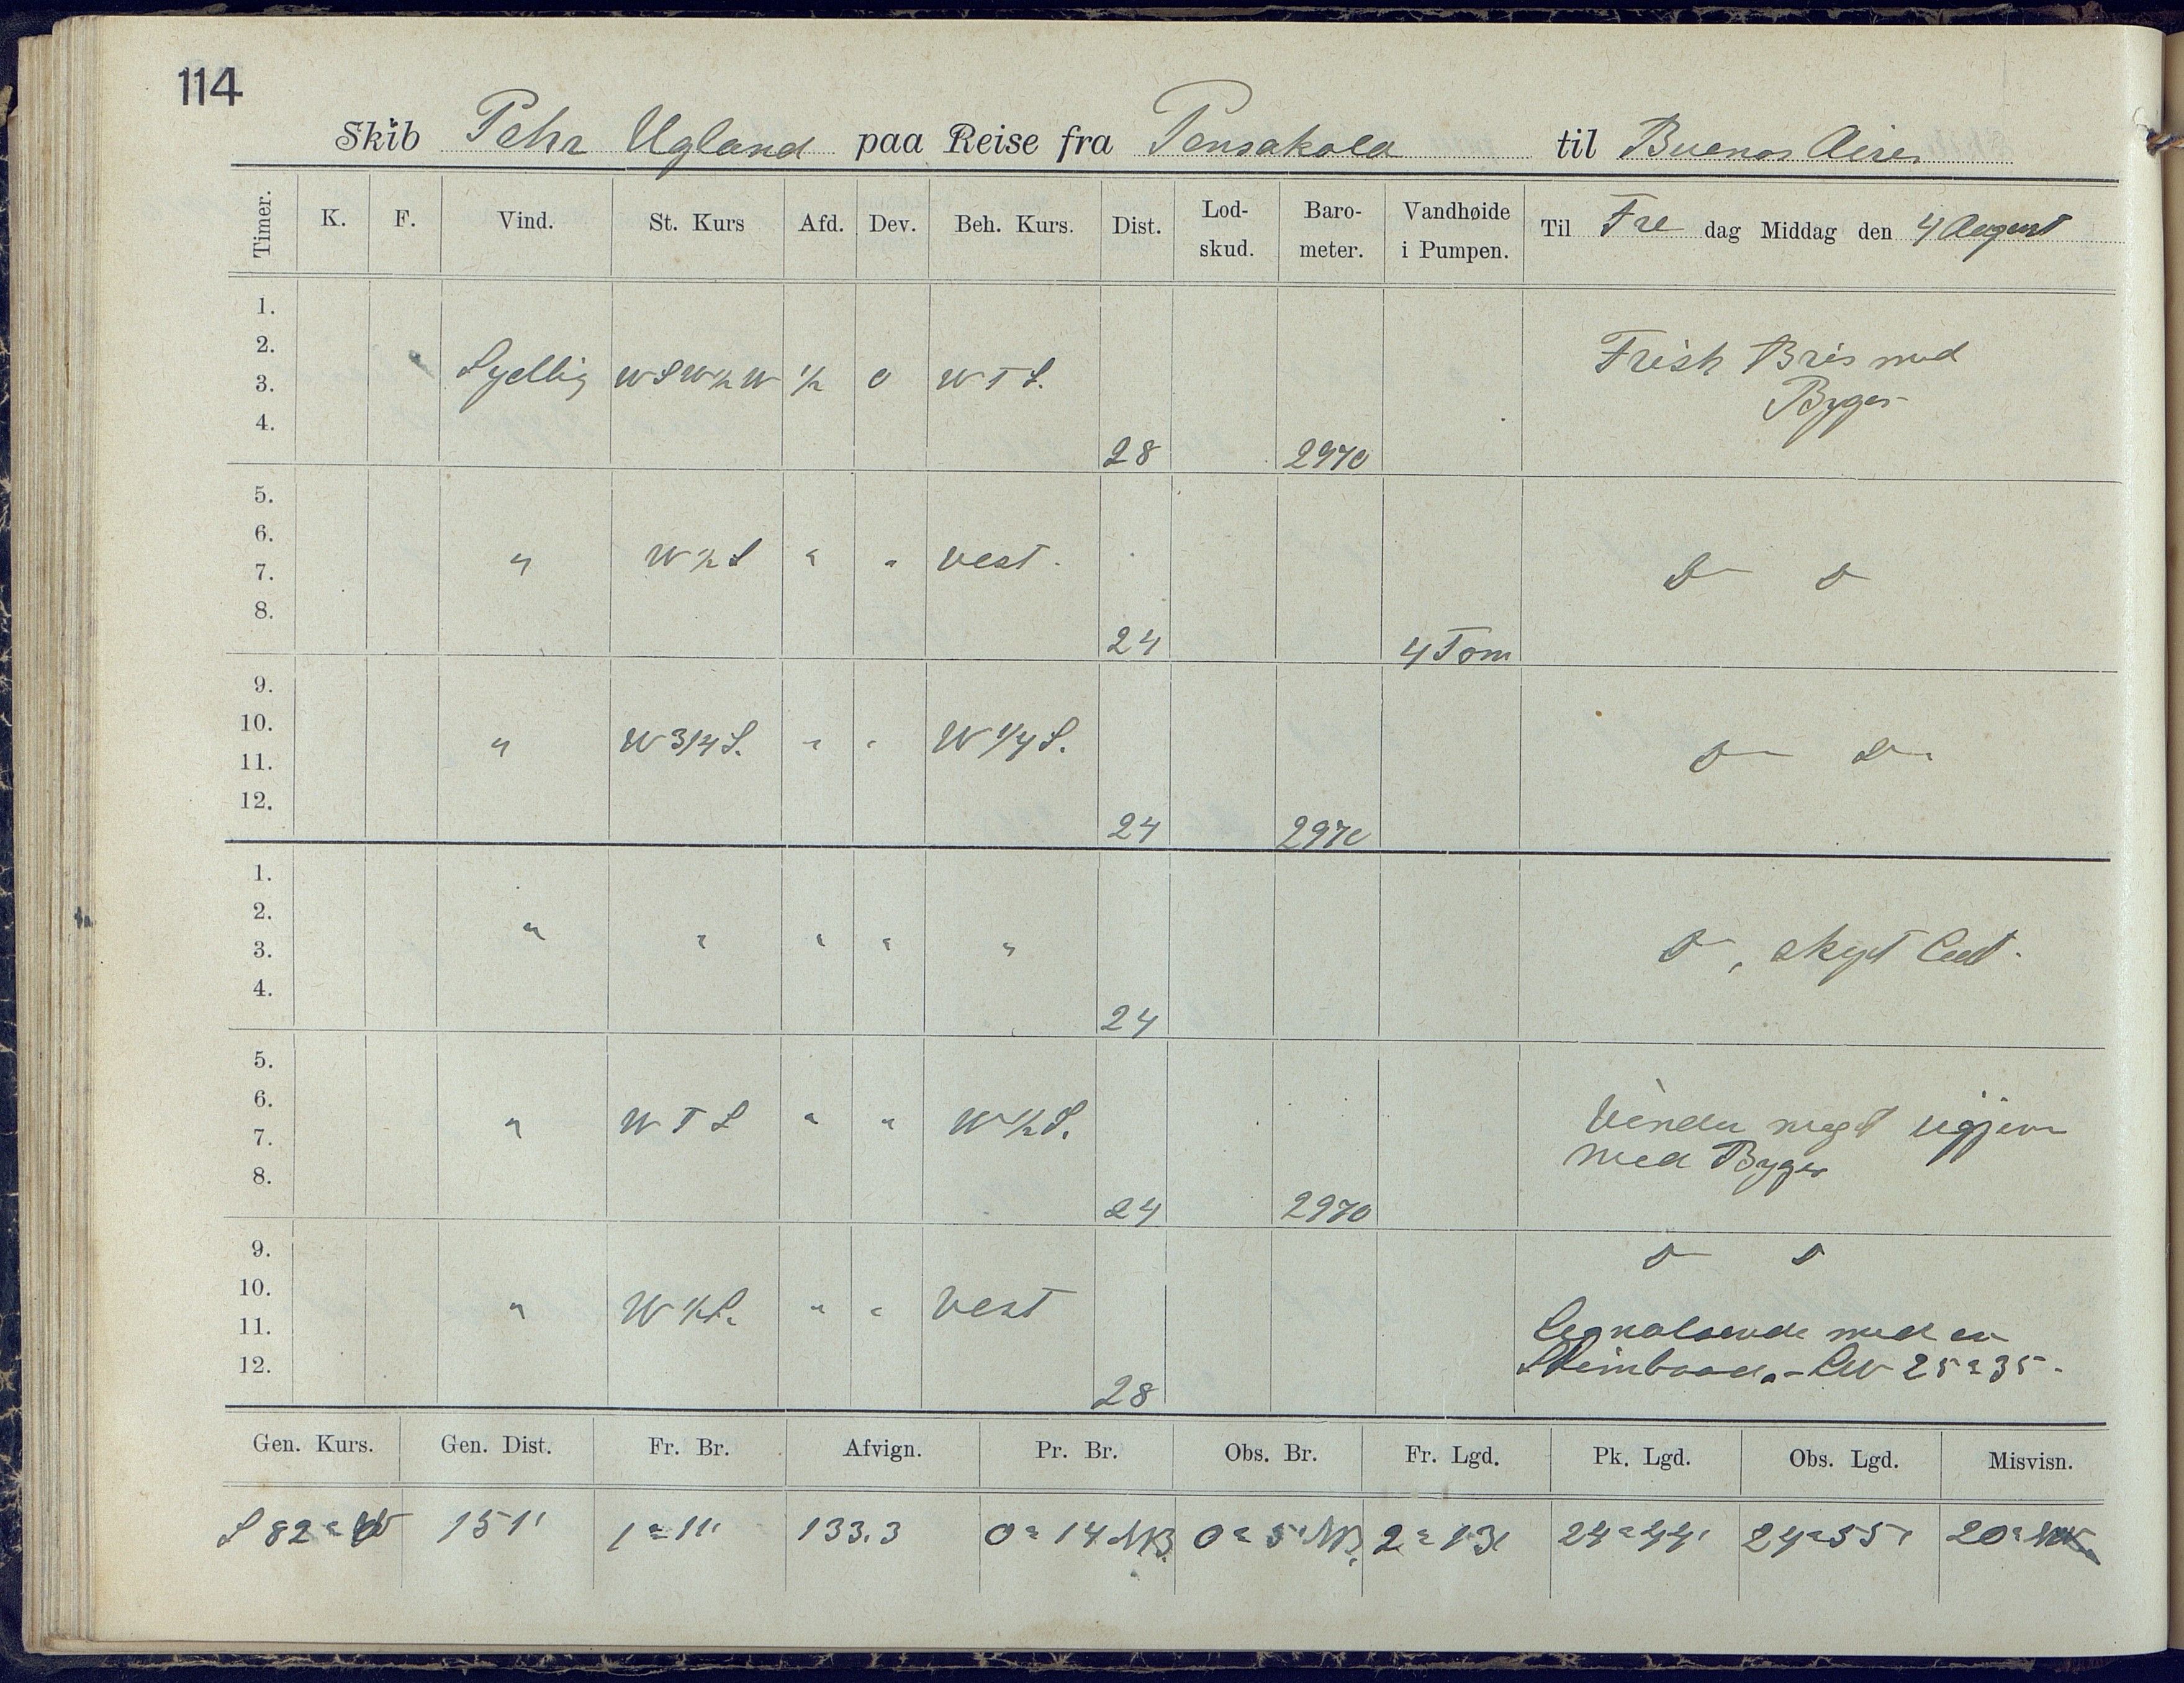 114
Skib Pehr Ugland paa Reise fra Pensakola til Buenos Aires
Timer. K. F. Vind. St. Kurs Afd. Dev. Beh. Kurs. Dist. Lod-skud. Baro-meter. Vandhøide i Pumpen. Til Fre dag Middag den 4 August
1.
2. Frisk Bris med
3. Sydlig WSW½W ½ 0 WTS. Byger
4. 28 2970
5.
6.
7. " W½S " " vest. D D
8. 24 4 Tom
9.
10. " W 3/4 S. " " W 1/4 S.
11. D D
12. 24 2970
1.
2.
3. " " " " " D, skyet Luft.
4. 24
5.
6. " WTS " " W½S. Vinden meget ugjevn
7. med Byger
8. 24 2970
9. D D
10. " W½S. " " Vest
11. med en
12. 28 25 35.
Gen. Kurs. Gen. Dist. Fr. Br. Afvign. Pr. Br. Obs. Br. Fr. Lgd. Pk. Lgd. Obs. Lgd. Misvisn.
S 82° W 151' 1° 11' 133.3 0° 14 NB. 0° 5' NB. 2° 13' 24° 44' 24° 55' 20°